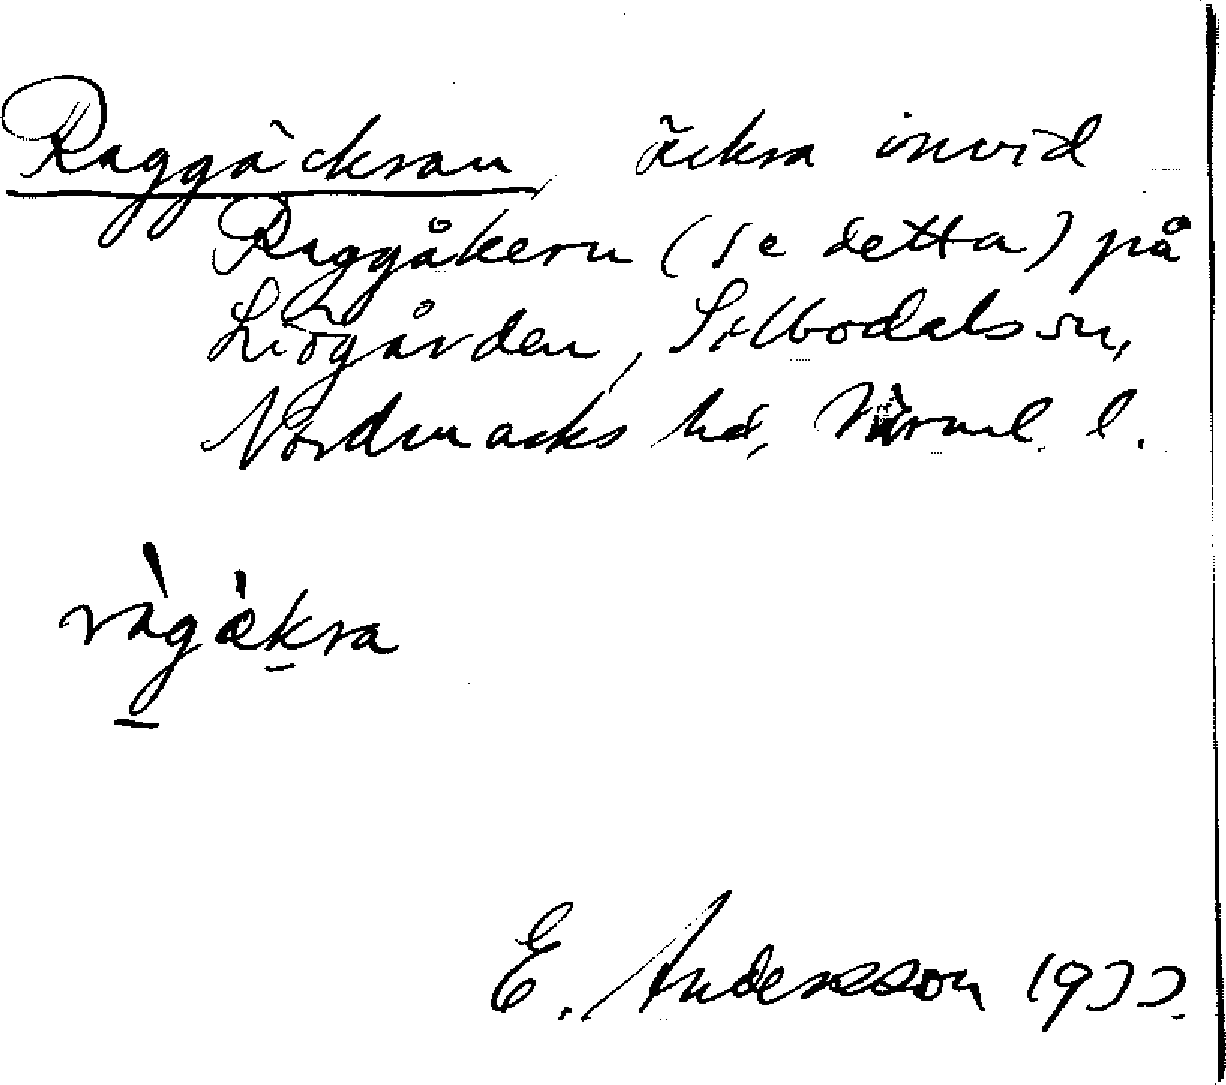 Raggäckran, äckra invid
Raggåkern (se detta) på
Liogården, Sillbodals sn,
Nordmarks hd, Värml. l.
ràgàkra
E. Andersson 1933.